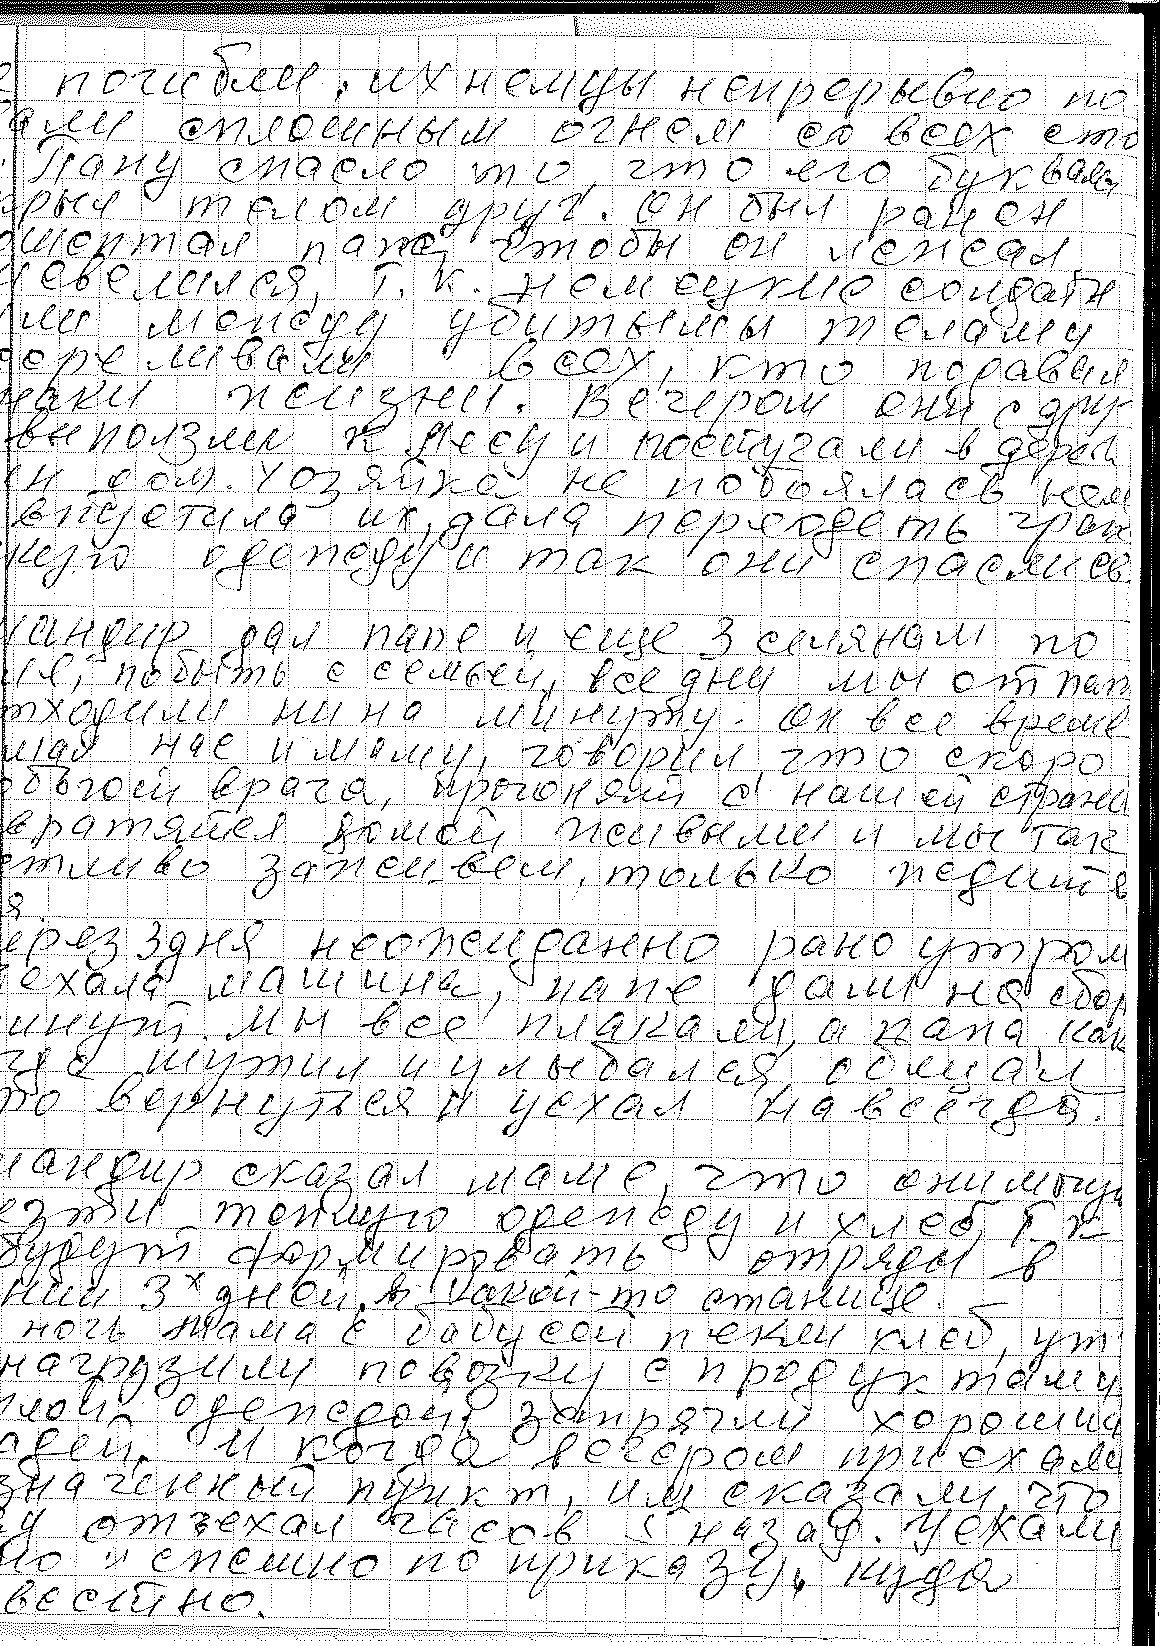 е погибли, их немцы непрерывно по
вали сплошным огнем со всех сто
. Папу спасло то, что его буквал
крыл телом друг. Он был ранен
ошептал папе, чтобы он лежал
шевелился, т.к. немецкие солдаты
или между убитыми телами
остреливали всех, кто подавал
наки жизни. Вечером они с дру
выползли к лесу и постучали в дерев
ий дом. Хозяйка не побоялась нем
впустила их, дала переодеть граж
кую одежду и так они спаслись.
мандир дал папе и еще 3 селянам по
ие, побыть с семьей, все дни мы от пап
тходили ни на минуту. Он все время
мал нас и маму, говорил, что скоро
обьют врага, прогонят с нашей страны
вратятся домой живыми и мы так
стливо заживем, только ждите
я.
ерез 3 дня неожиданно рано утром
иехала машина, папе дали на сбор
минут. Мы все плакали, а папа как
гда шутил и улыбался, обещал
то вернуться и уехал навсегда.
мандир сказал маме, что они могут
езти теплую одежду и хлеб, т.к
будут формировать отряды в
нии 3х дней, в какой-то станице.
ночь мама с бабусей пекли хлеб, ут
нагрузили повозку с продуктами
плой одеждой, запрягли хороших
адей. И когда вечером приехали
значенный пункт, им сказали, что
яд отъехал часов 5 назад. Уехали
но и спешно по приказу, куда
вестно.